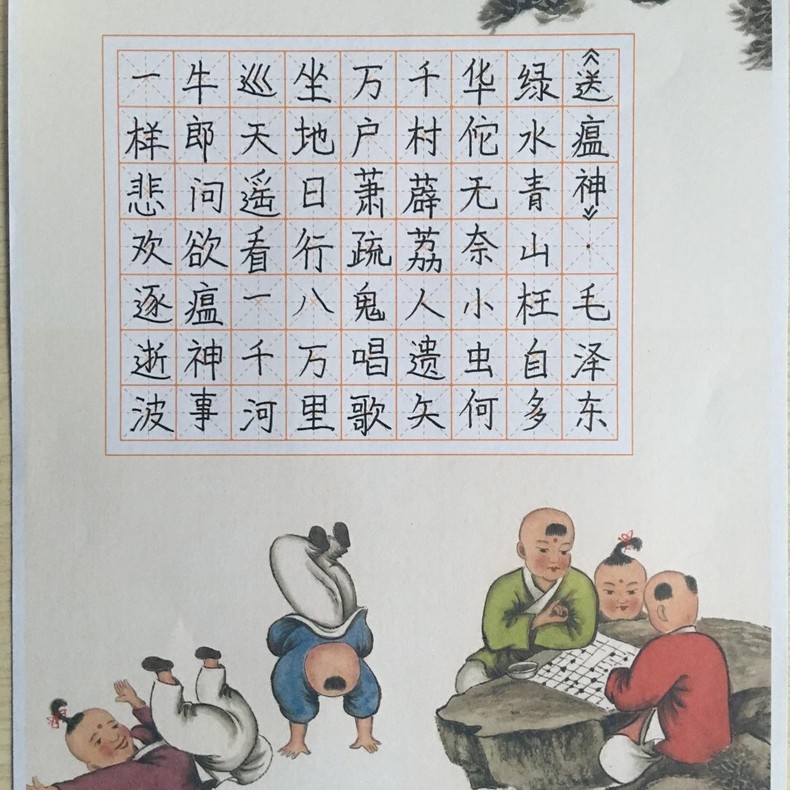 《送瘟神》·毛泽东
绿水青山枉自多
华佗无奈小虫何
千村薜荔人遗矢
万户萧疏鬼唱歌
坐地日行八万里
巡天遥看一千河
牛郎问欲瘟神事
一样悲欢逐逝波